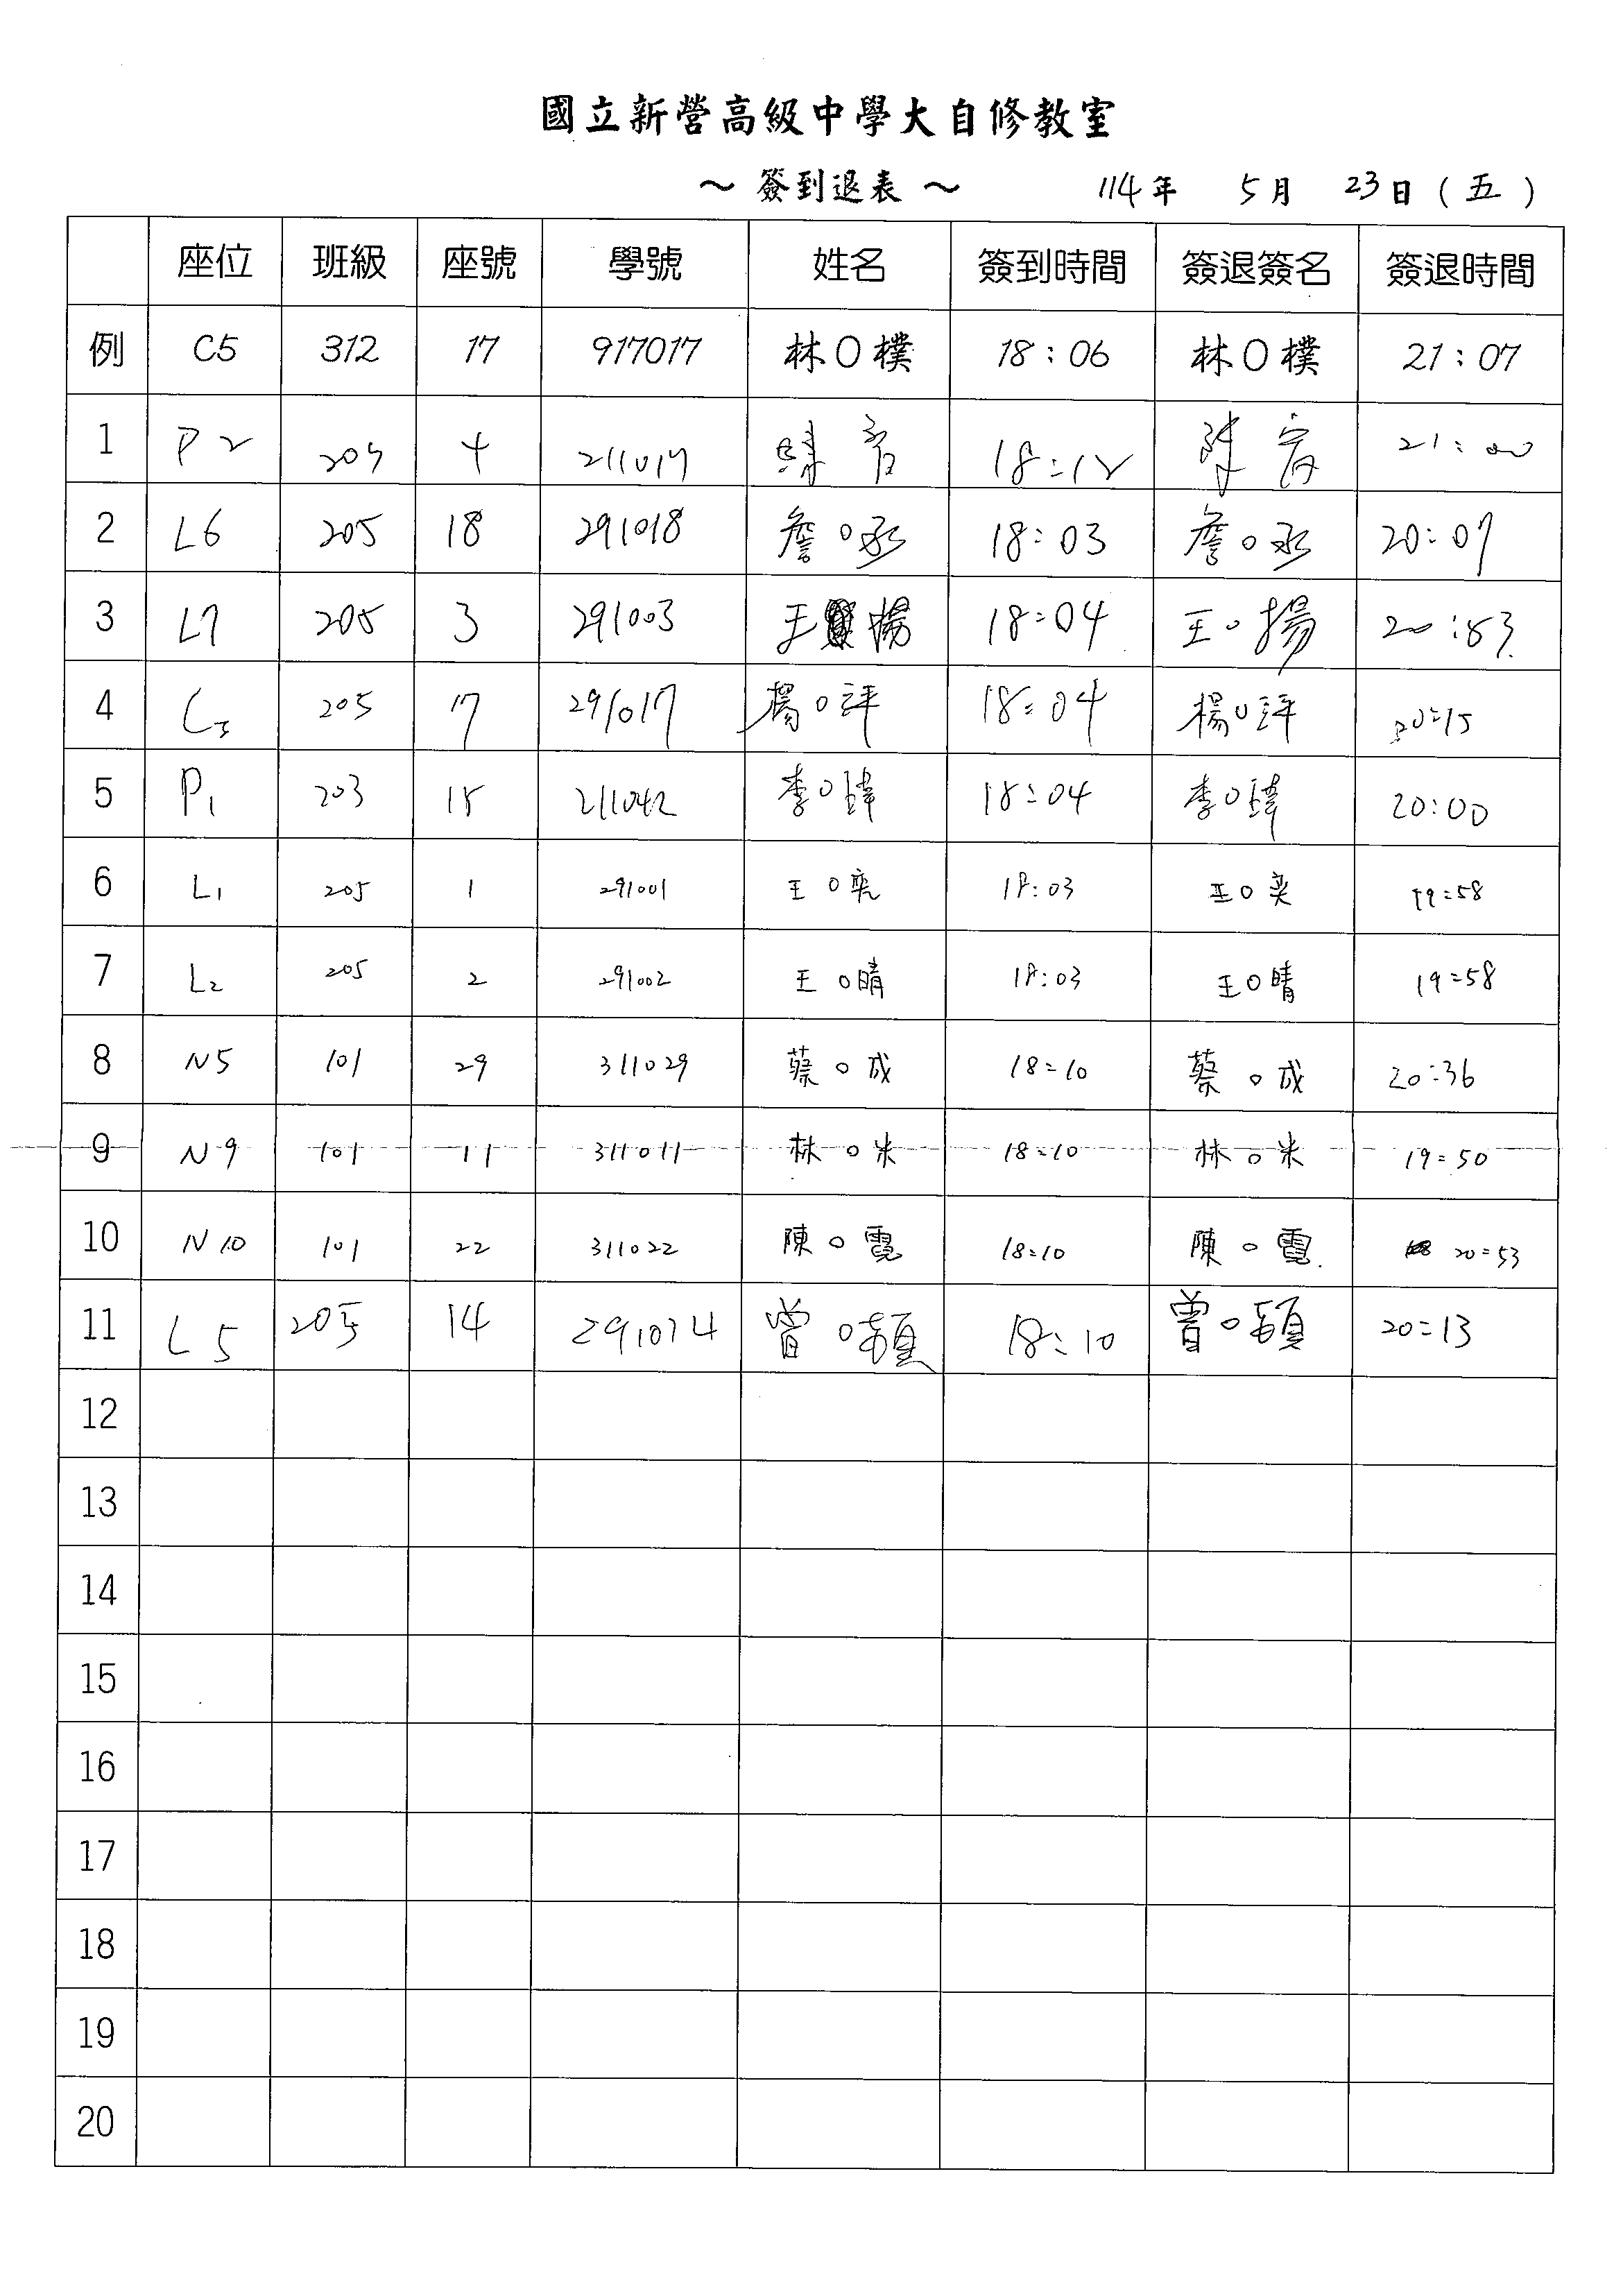 國立新營高級中學大自修教室
～ 簽到退表 ～ 114年 5月 23日 ( 五 )
座位 班級 座號 學號 姓名 簽到時間 簽退簽名 簽退時間
例 C5 312 17 917017 林〇樸 18:06 林〇樸 21:07
1 P2 205 4 18:12 陳 21:00
2 L6 205 18 291018 詹〇丞 18:03 詹〇丞 20:07
3 L7 205 3 291003 王 揚 18:04 王〇揚 20:53
4 C3 205 17 291017 楊〇評 18:04 楊〇評 20:15
5 P1 203 18 211042 李〇瑋 18:04 李〇瑋 20:00
6 L1 205 1 291001 王〇奕 18:03 王〇奕 19:58
7 L2 205 2 291002 王〇晴 18:03 王〇晴 19:58
8 N5 101 29 311029 蔡〇成 18:10 蔡〇成 20:36
9 N9 101 11 311011 林〇米 18:10 林〇米 19:50
10 N10 101 22 311022 陳〇霓 18:10 陳〇霓 20:53
11 L5 205 14 291014 曾〇頤 18:10 曾〇頤 20:13
12
13
14
15
16
17
18
19
20